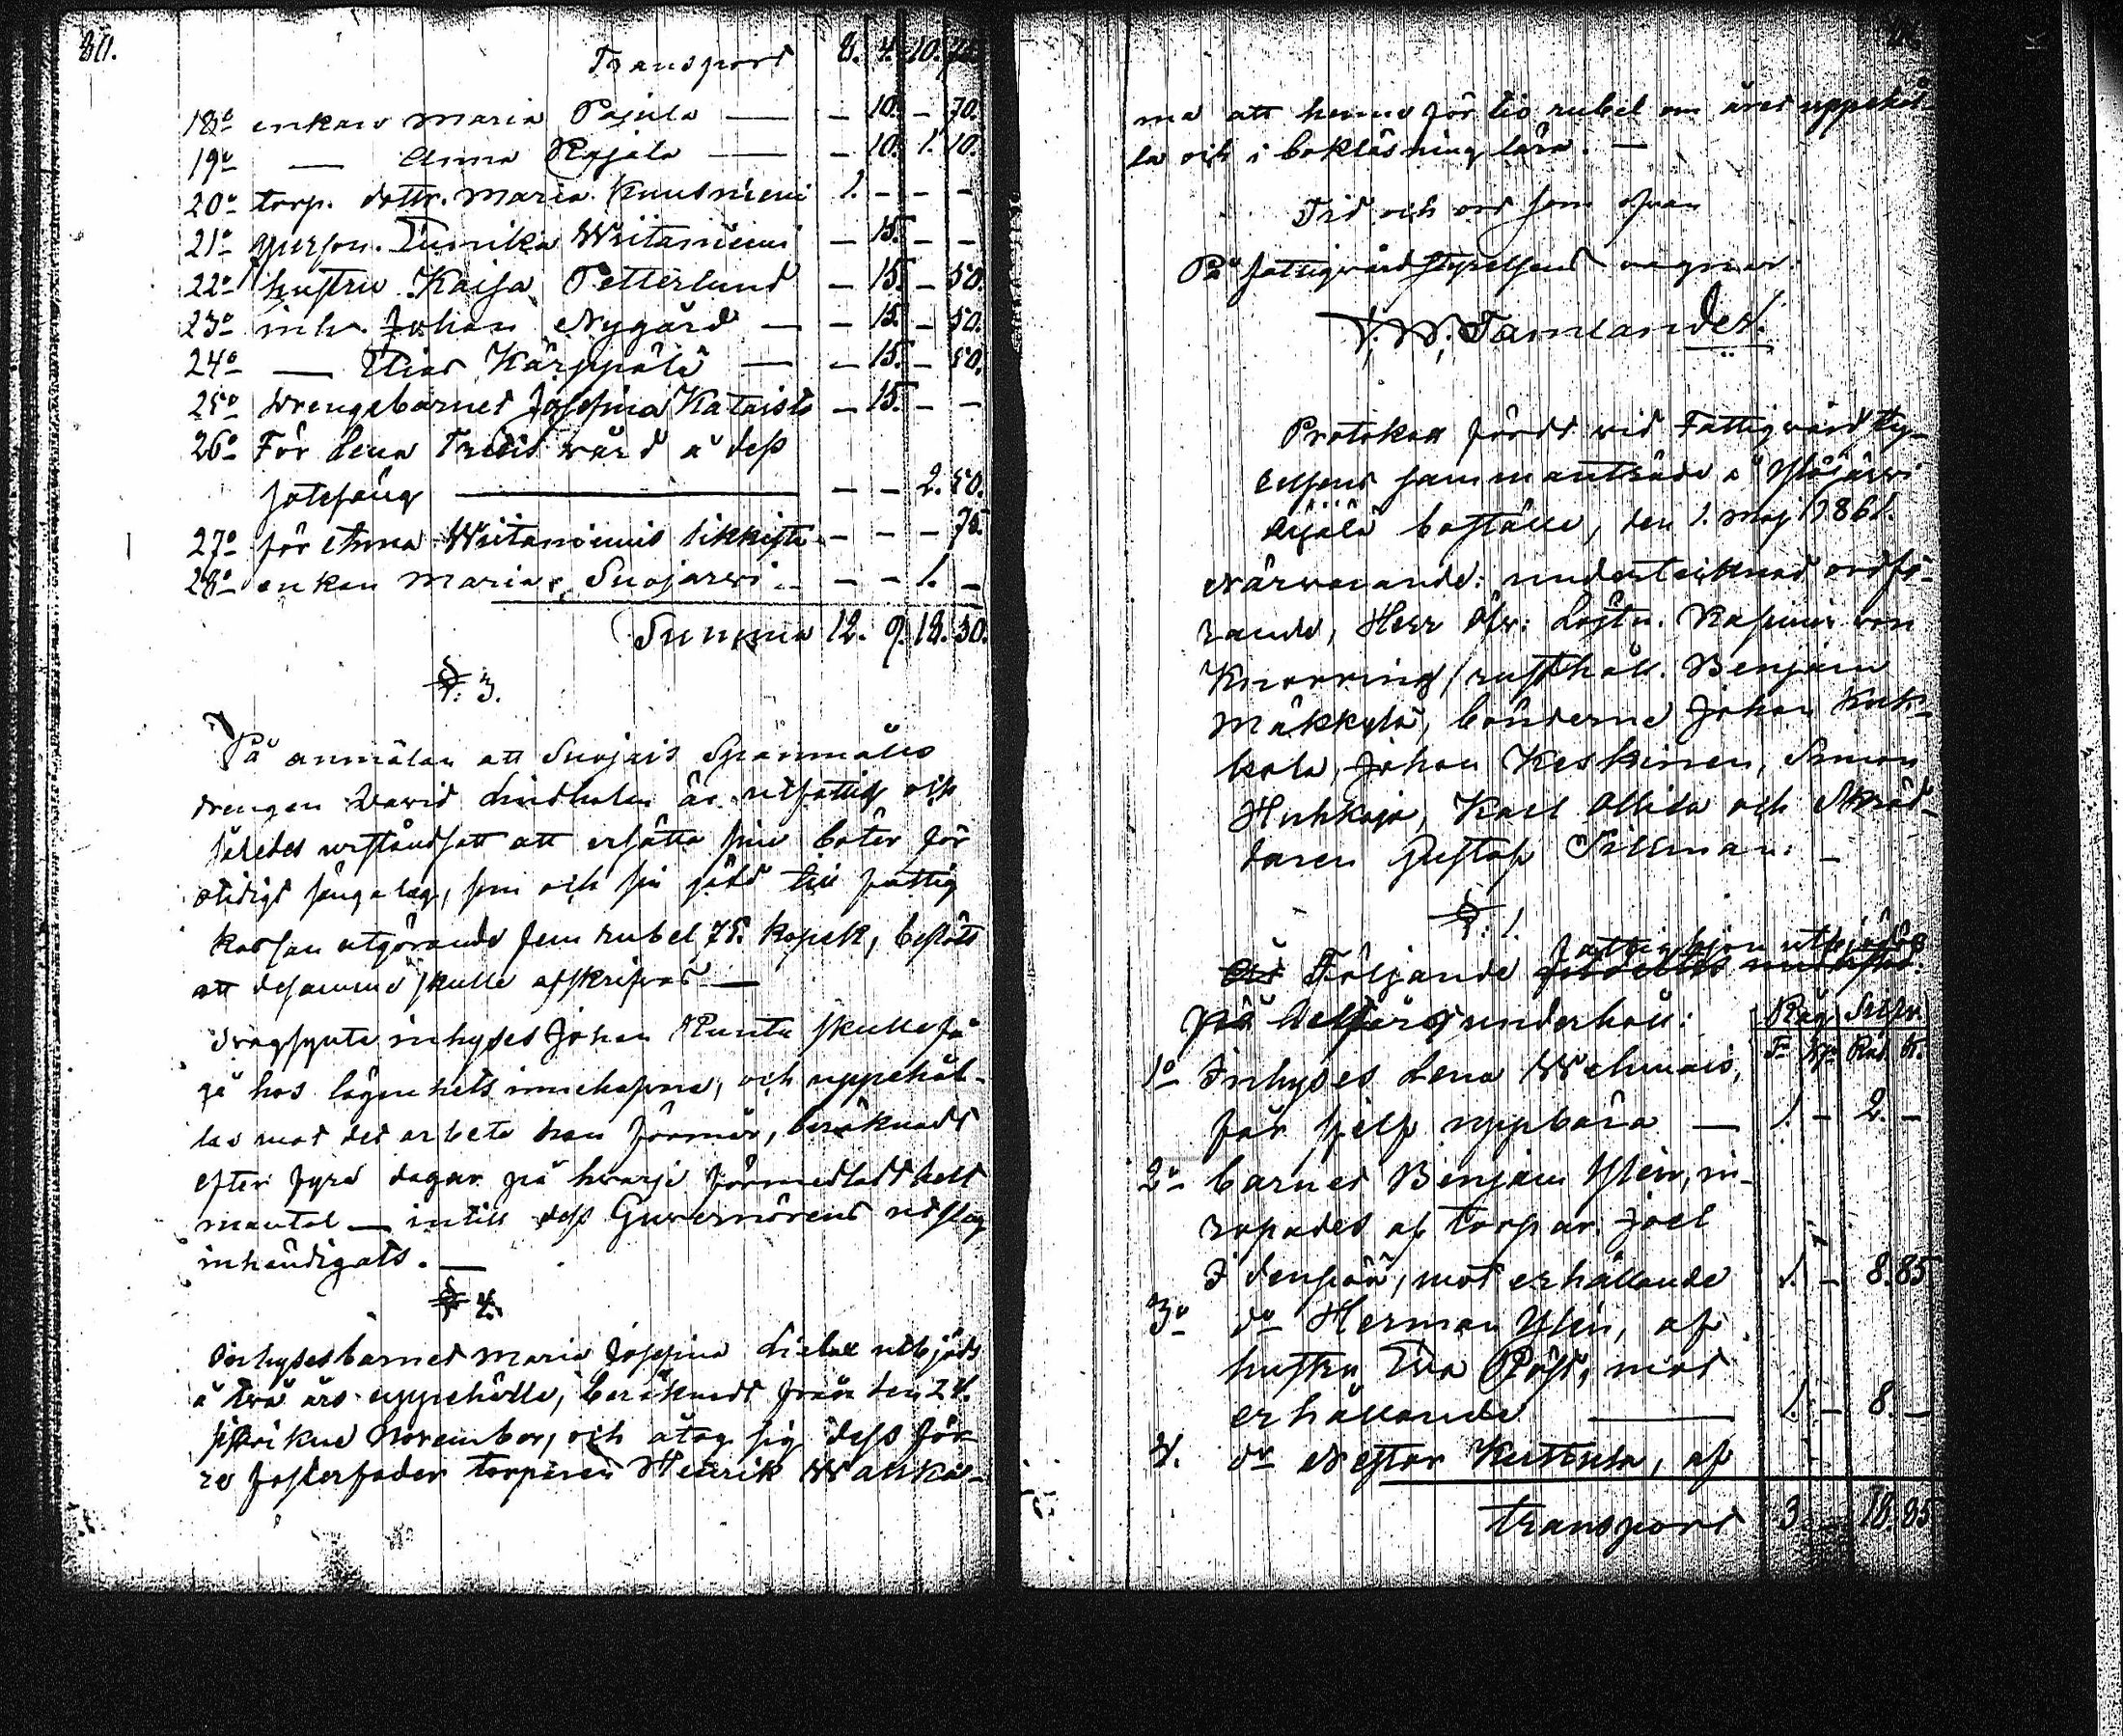 80.
Transport 8. 4. 10.
18o enkan Maria Pajula — — 10. — 70.
19o — Anna Rajala — — 10. 1. 10.
20o torp. dottr. Maria Knusniemi 1. — — —
21o qvinsp. Wiitaniemi — 15. — —
22o hustru Kaisa Petterlund — 15. — 50.
23o inh. Johan Nygård — — 15. — 50.
24o — Elias Kärppälä — — 15. — 50.
25o drengebarnet Josefina Kataisto — 15. — —
26o För Lena vård å dess
— — 2. 50.
27o för Anna Wiitaniemis likkista — — — 75.
28o enkan Maria Suojärvi — — 1. —
Summa 12. 9. 18. 50.
§. 3.
På anmälan att Suojais
drengen David Lindholm är utfattig och
således urståndsatt att ersätta sine böter för
otidigt sängelag, som och sin gäld till fattig
kassan utgörande fem rubel 75. kopek, beslöts
att desamme skulle afskrifvas. —
inhyses Johan Runtu skulle få
gå hos lägenhets innehafvare, och uppehål-
las mot det arbete han förmår, beräknadt
efter fyra dagar på hvarje förmedladt helt
mantal — intill dess Guvernörens utslag
inhändigats. —
§ 4.
Inhysesbarnet Maria Josefina utbjöds
å två års uppehälle, beräknadt från den 24.
November, och åtog sig dess för-
re fosterfader torparen Henrik
ma att henne för tio rubel om året uppehål-
la och i bokläsning lära. —
Tid och ord som ofvan
På fattigvårdstyrelsens vägnar:
F. W. Tamlander.
Protokoll fördt vid Fattigvårdsty-
relsens sammanträde å Ylöjärvi
Äijälä boställe, den 1. maj 1861.
Närvarande: undertecknad ordfö-
rande, Herr Öfv: Löjtn. Kasimir von
Knorring, rusthåll. Benjam
Mäkkylä, bönderne Johan Kuk-
kola, Johan Keskinen, Simon
Huhkaja, Karl Ollila och Skräd-
daren Gustaf Tillman. —
§. 1.
Följande fattighjon utbjödos
på helårs underhåll:
Råg Silfv.
T. Kp. Rub. K.
1o Inhyses Lena Wehmais,
får sjelf uppbära — 1. — 2. —
2o barnet Benjam Ylén, in-
ropades af torpar. Joel
Idenpää, mot erhållande 1. — 8. 85
3o do Herman Ylén, af
hustru Eva Röst, mot
erhållande — 1. — 8. —
4. do Nestor Kuttula, af
transport 3. — 18. 85